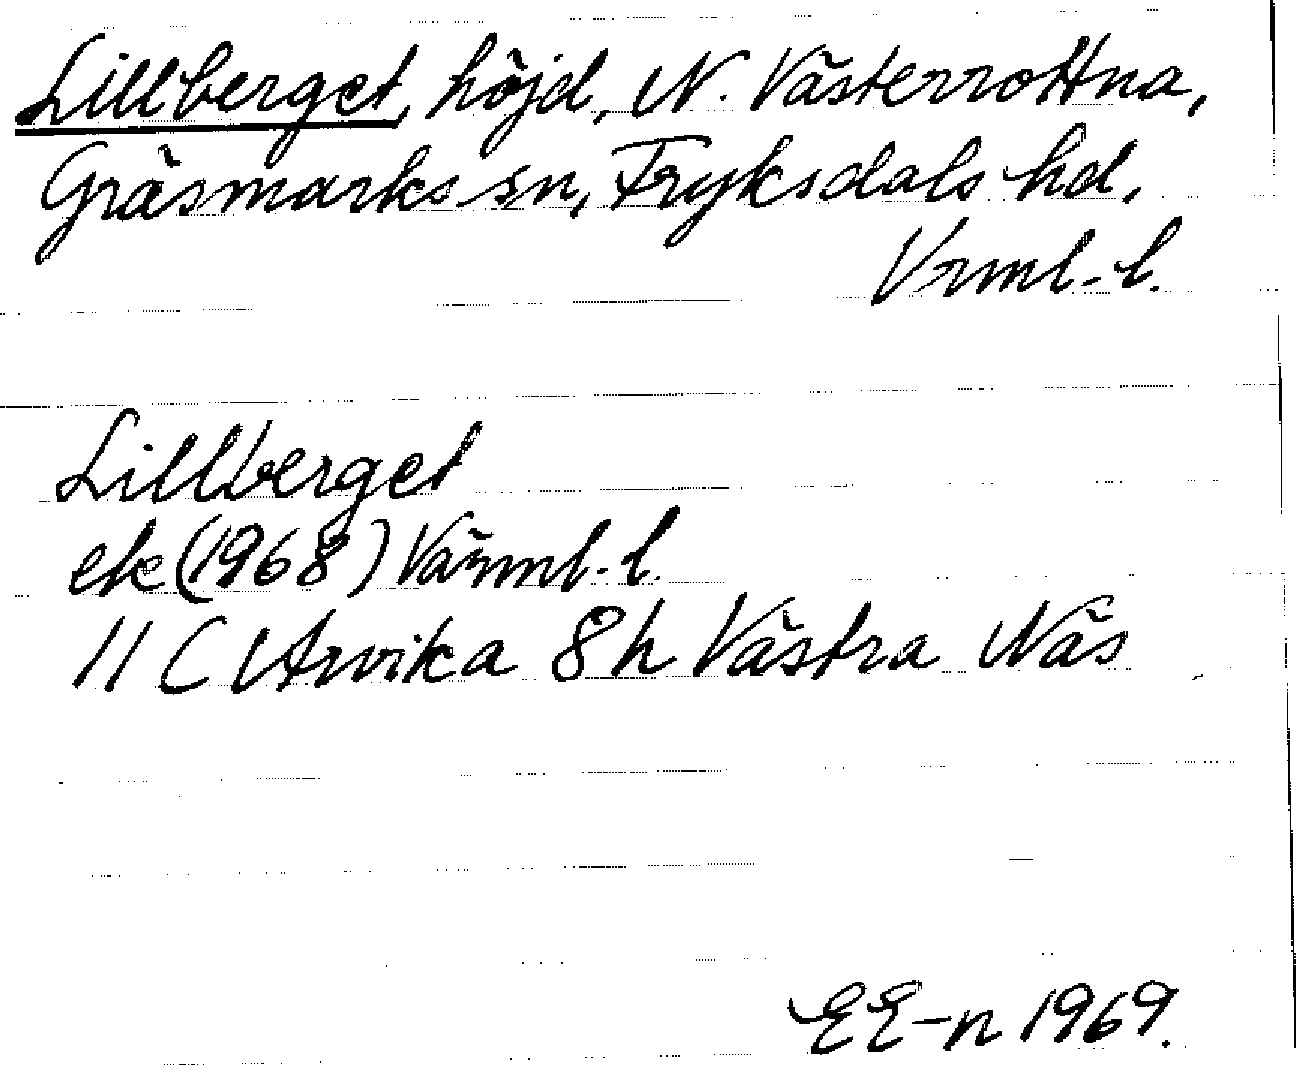 Lillberget, höjd, N. Västerrottna,
Gräsmarks sn, Fryksdals hd,
Vrml-l.
Lillberget
ek (1968) Värml-l.
11 C Arvika 8 h Västra Näs
EE-n 1969.